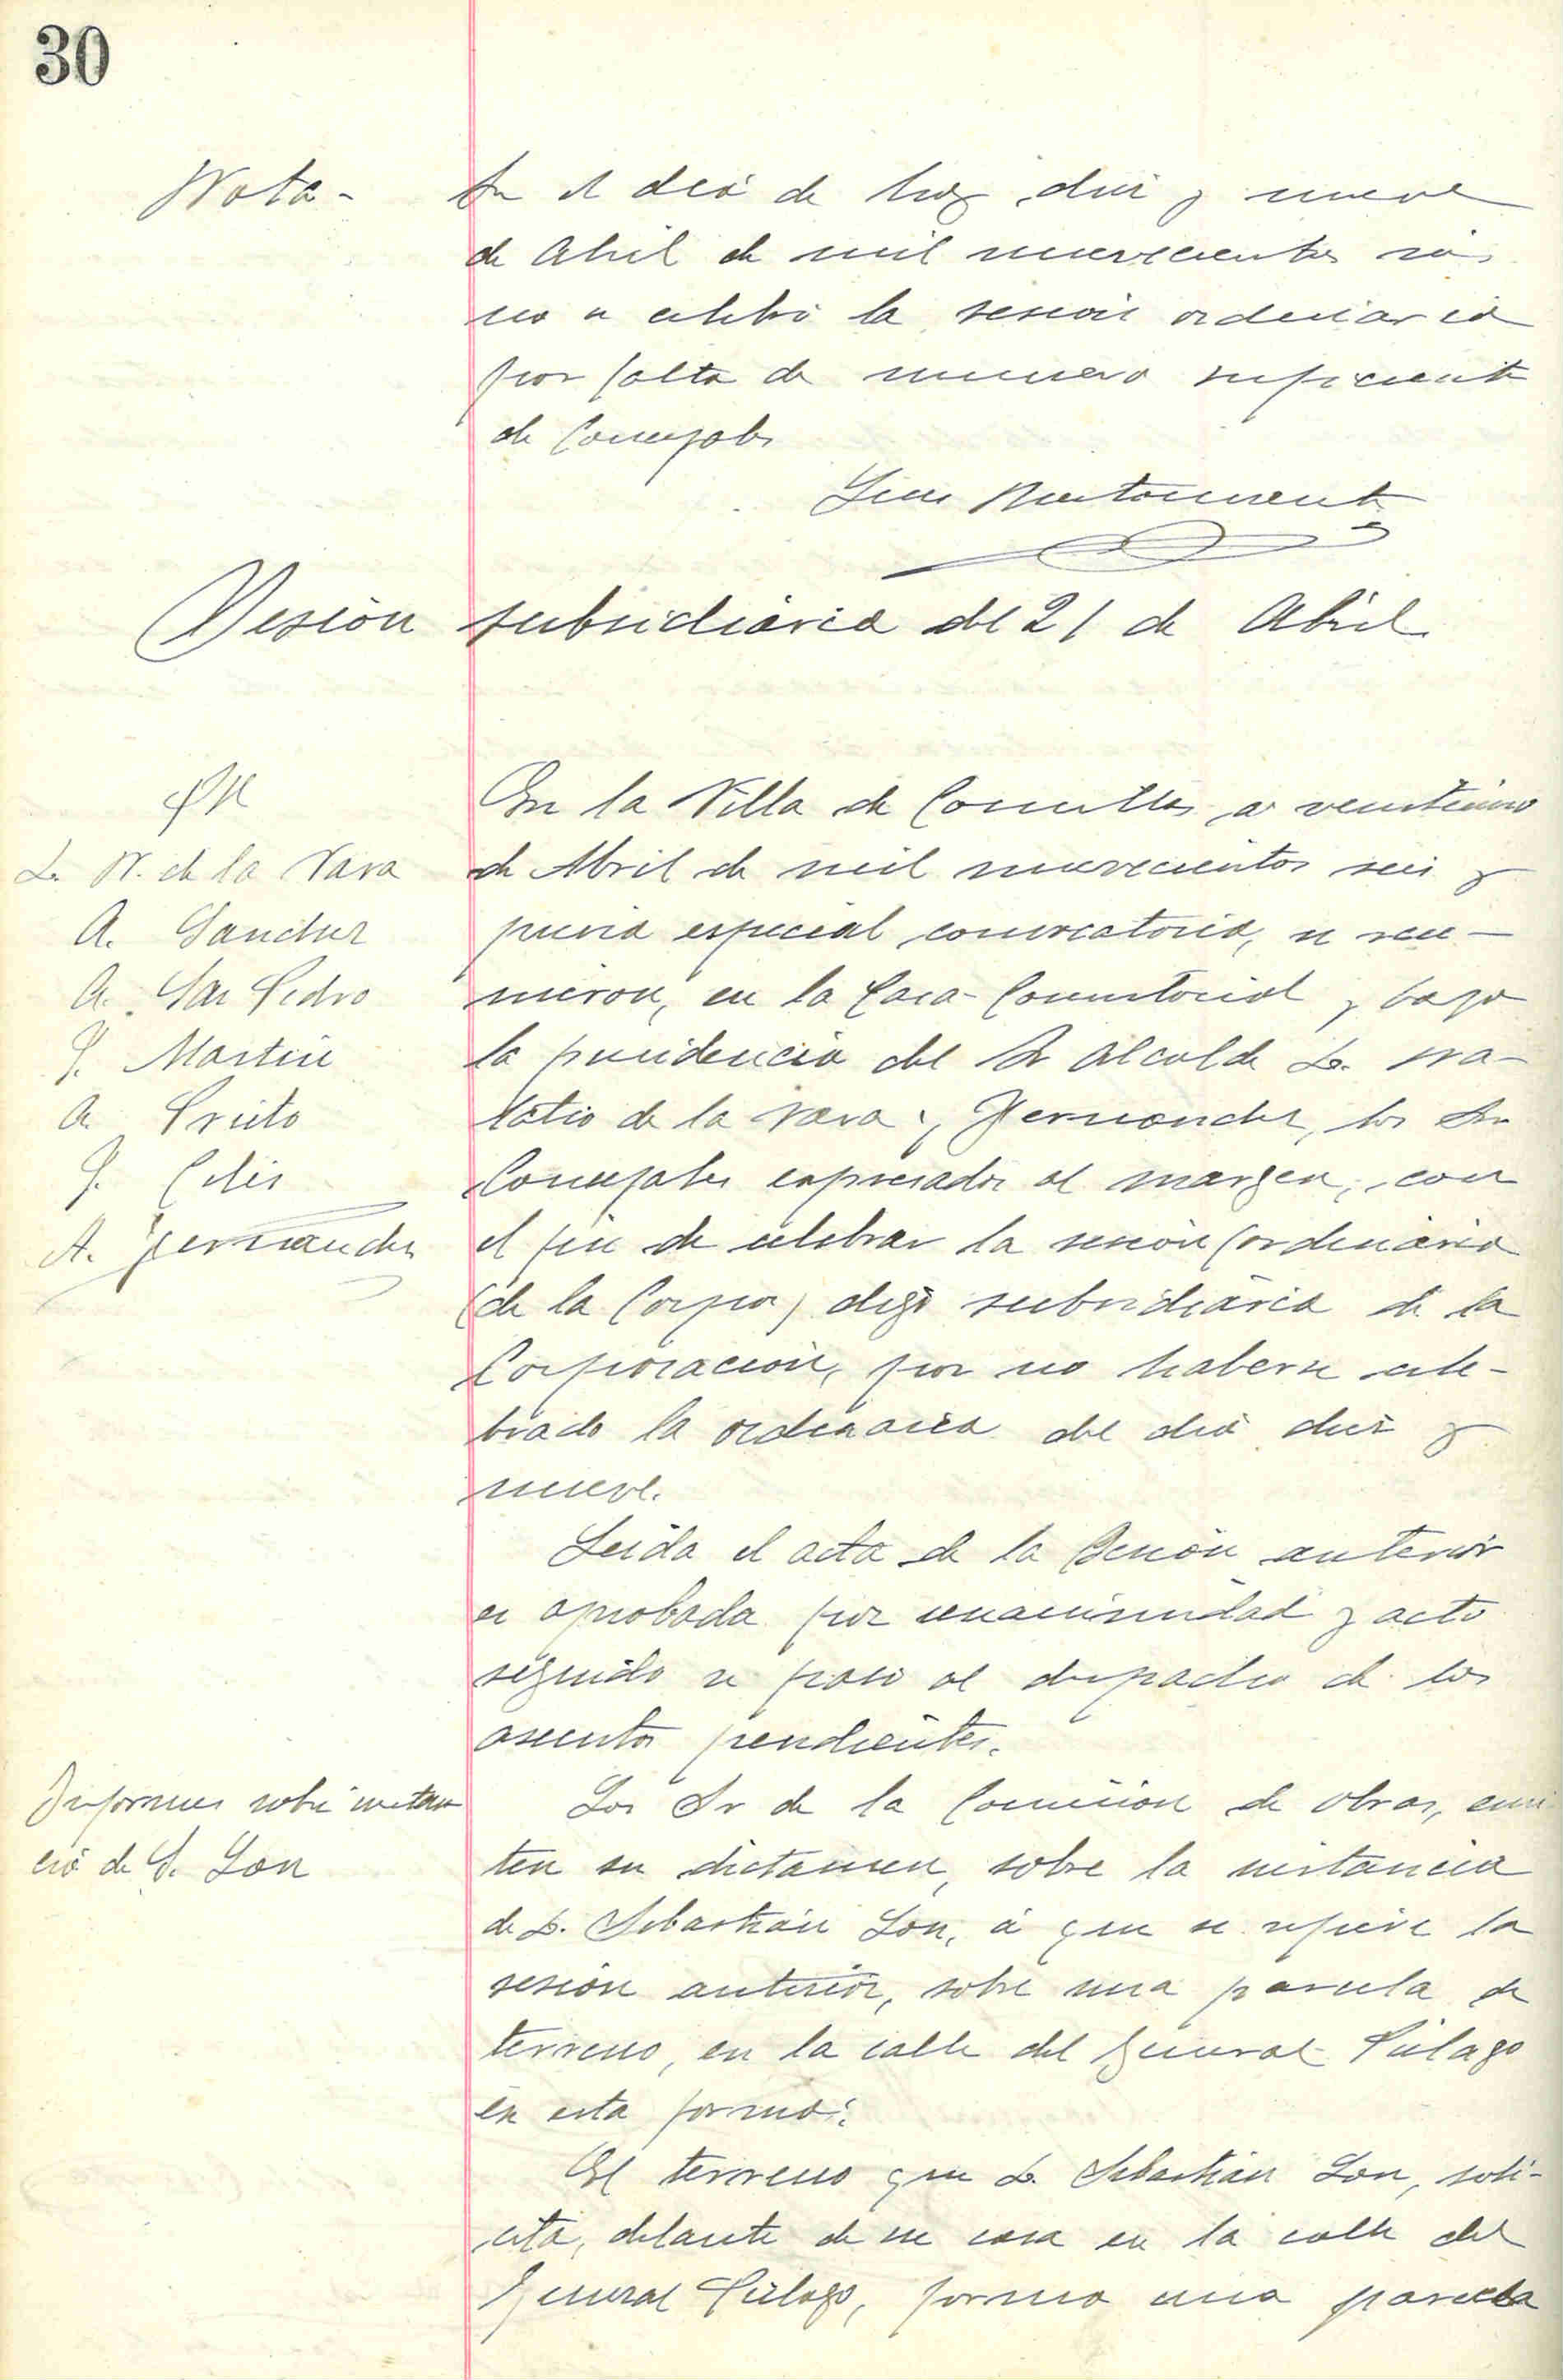 30
Nota-
En el dia de hoy diez y nueve
de Abril de mil novecientos seis
no se celebró la sesion ordinaria
por falta de numero suficiente
de Concejales
Sesion subsidiaria del 21 de Abril
En la Villa de Comillas a veintiuno
de Abril de mil novecientos seis y
previa especial convocatoria, se reu-
nieron, en la Casa-Consistorial y bajo
la presidencia del Sr Alcalde D. Na-
talio de la Vara y Fernandez, los Sres
Concejales expresados al margen, con
el fin de celebrar la sesion (ordinaria
(de la Corpor) digo subsidiaria de la
Corporacion, por no haberse cele-
brado la ordinaria del dia diez y
nueve.
D. N. de la Vara
A. Sanchez
A. San Pedro
J. Martin
A. Prieto
J. Celis
A. Fernandez
Leida el acta de la Sesion anterior
es aprobada por unanimidad y acto
seguido se paso al despacho de los
asuntos pendientes.
Informes sobre instan
cia de S. Lon
Los Sr de la Comision de obras, emi
ten su dictamen, sobre la instancia
de D. Sebastián Lon, á que se refiere la
sesion anterior, sobre una parcela de
terreno, en la calle del General Piélago
en esta forma:
El terreno que D. Sebastian Lon, soli-
cita, delante de su casa en la calle del
General Piélago, forma una parcela